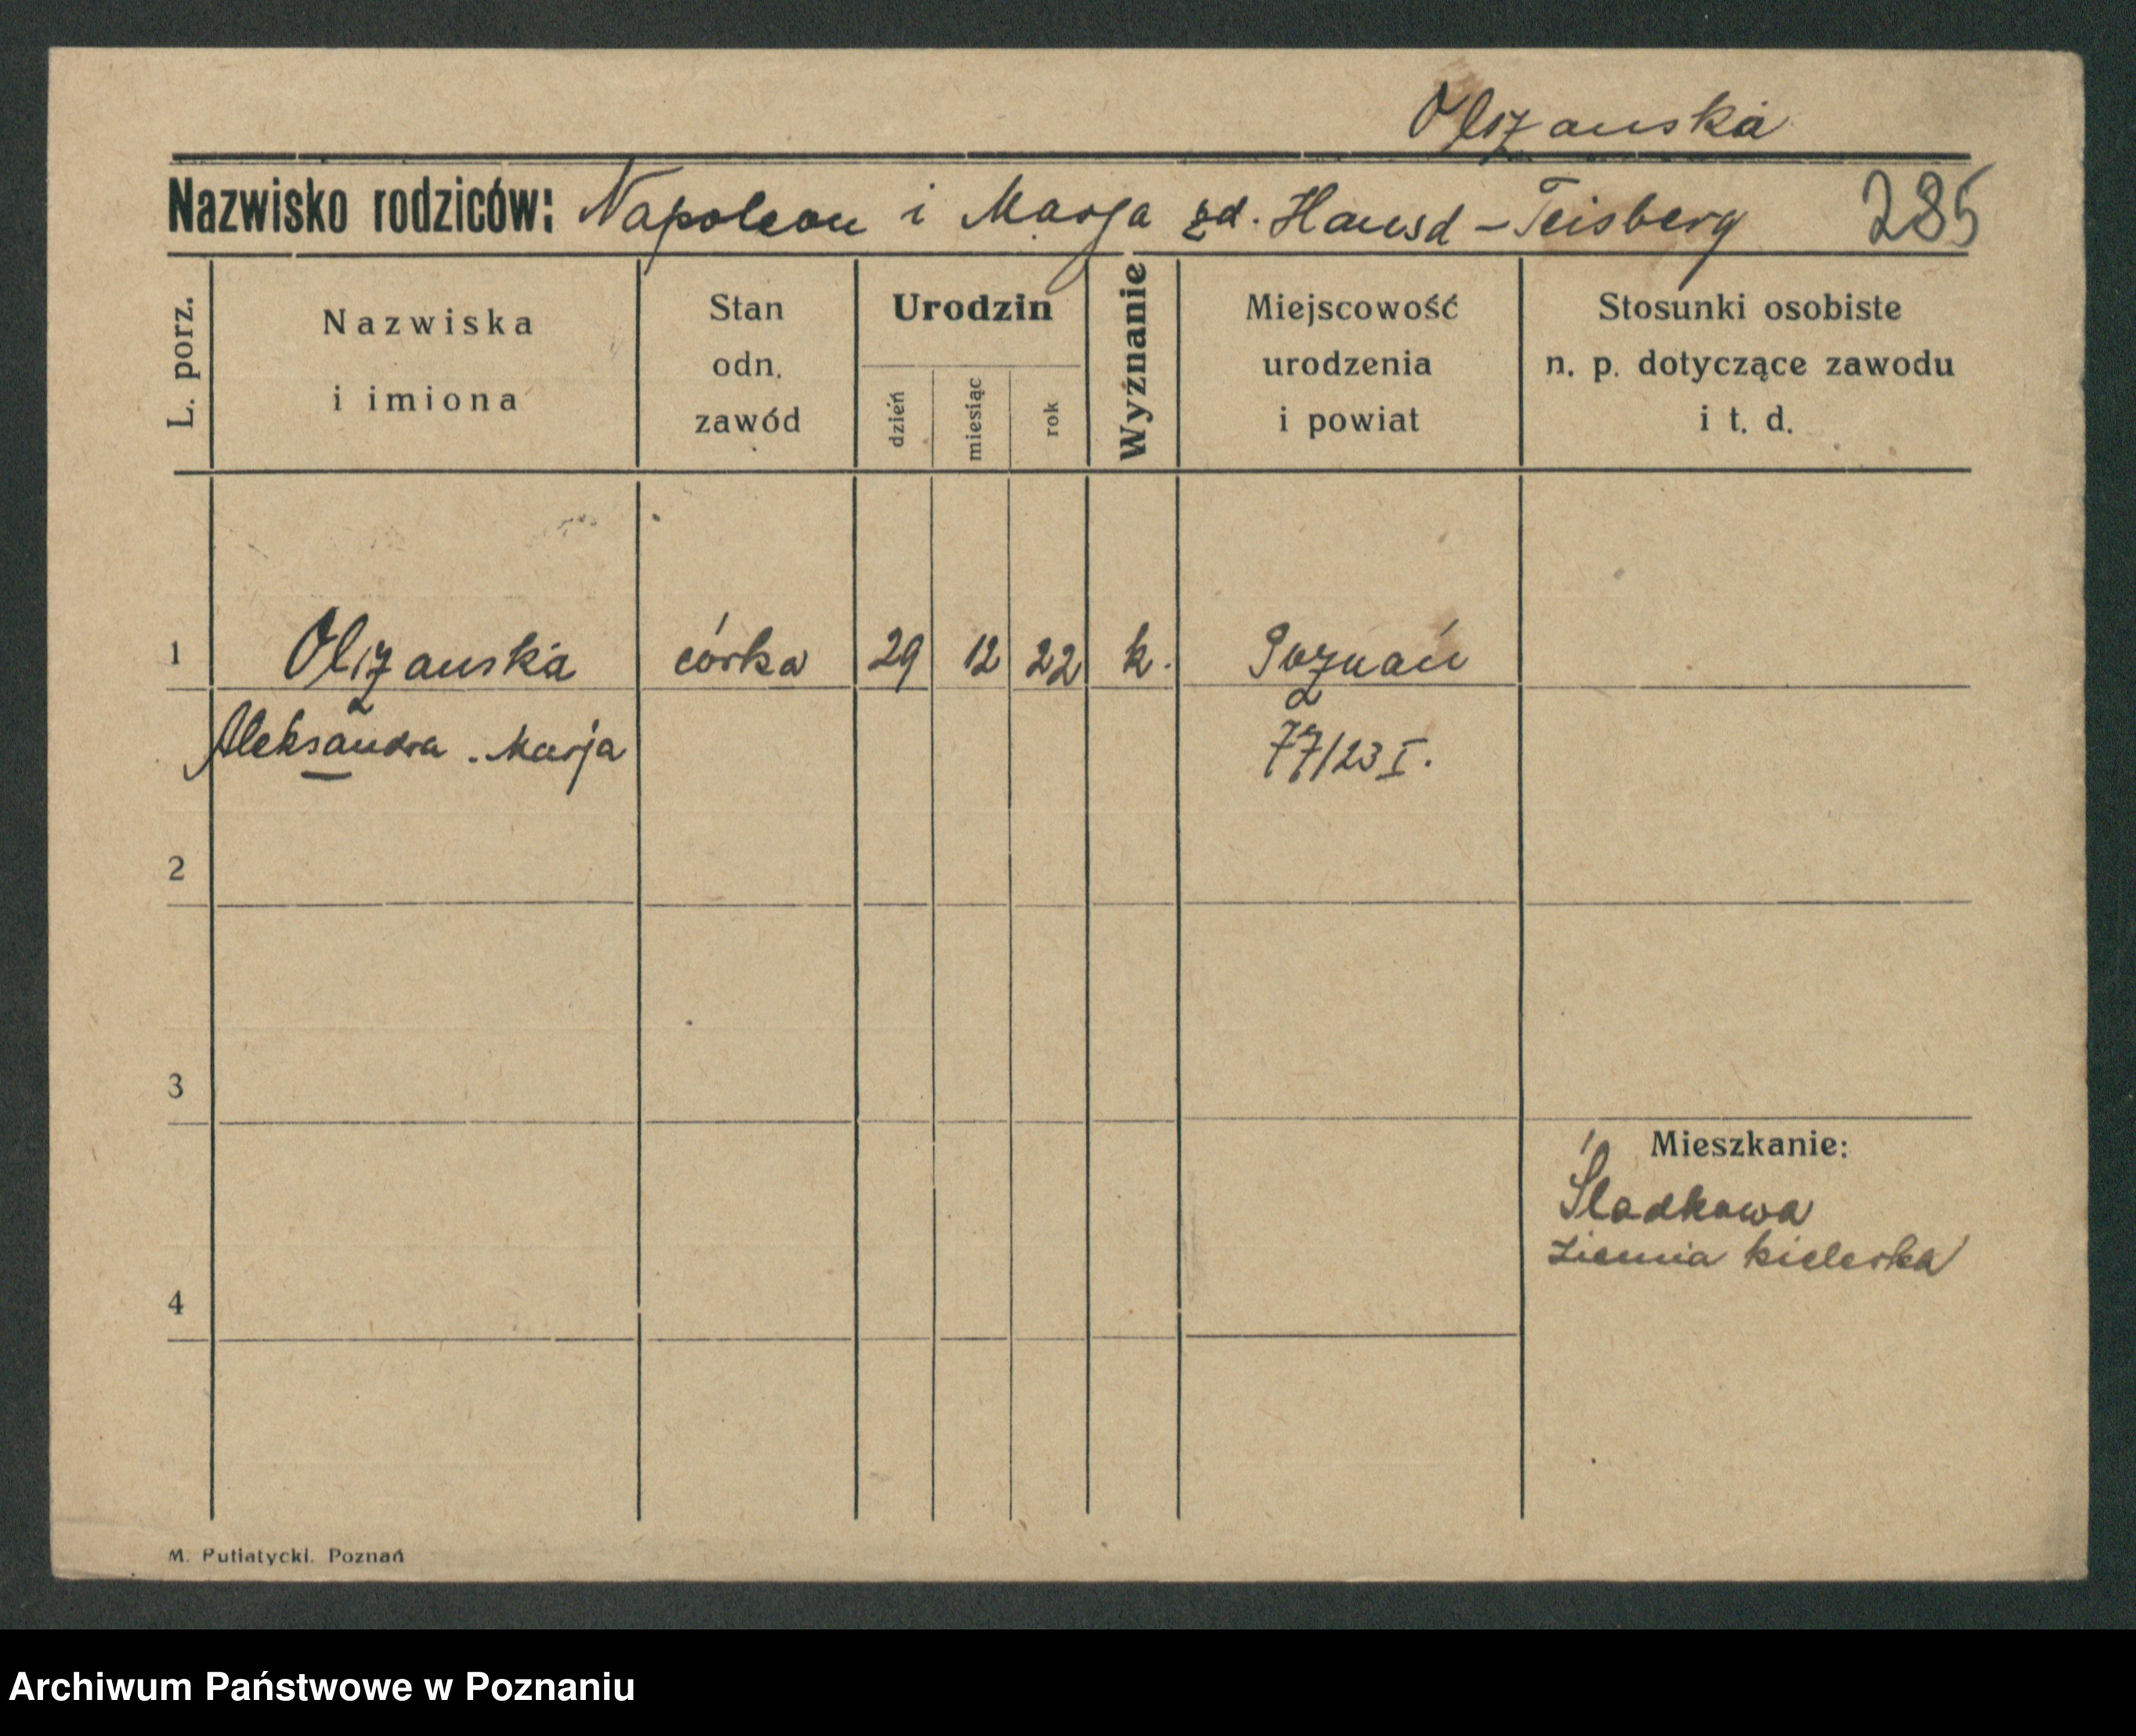 Olizanska
Nazwisko rodziców: Napoleon i Marja zd. - Teisberg 285
L. porz.
Nazwiska
i imiona
Stan
odn.
zawód
Urodzin
dzień
miesiąc
rok
Wyznanie
Miejscowość
urodzenia
i powiat
Stosunki osobiste
n. p. dotyczące zawodu
i t. d.
1 Olizanska córka 29 12 22 k. Poznań
Aleksandra - Marja 77/23 I.
2
3
Mieszkanie:
Sladkowa
ziemia kielecka
4
M. Putiatycki. Poznań
Archiwum Państwowe w Poznaniu